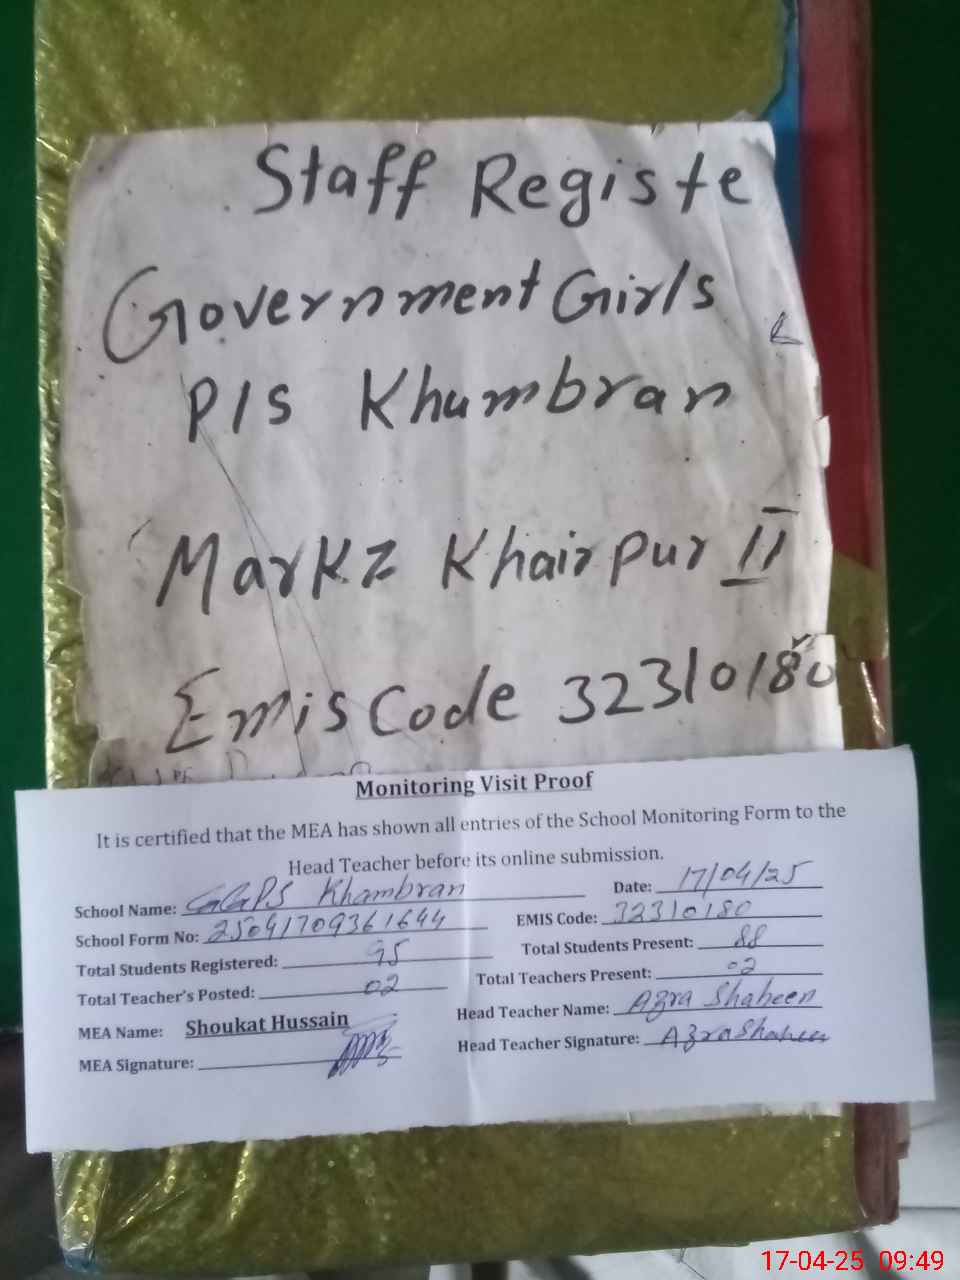 Staff Registe
Government Girls
P/S Khumbran
Markz Khairpur II
Emis Code 32310180
Monitoring Visit Proof
It is certified that the MEA has shown all entries of the School Monitoring Form to the
Head Teacher before its online submission.
School Name: GGPS Khambran Date: 17/04/25
School Form No: 25041709361644 EMIS Code: 32310180
Total Students Registered: 95 Total Students Present: 88
Total Teacher's Posted: 02 Total Teachers Present: 02
MEA Name: Shoukat Hussain Head Teacher Name: Azra Shaheen
MEA Signature: Head Teacher Signature: Azra Shaheen
17-04-25 09:49